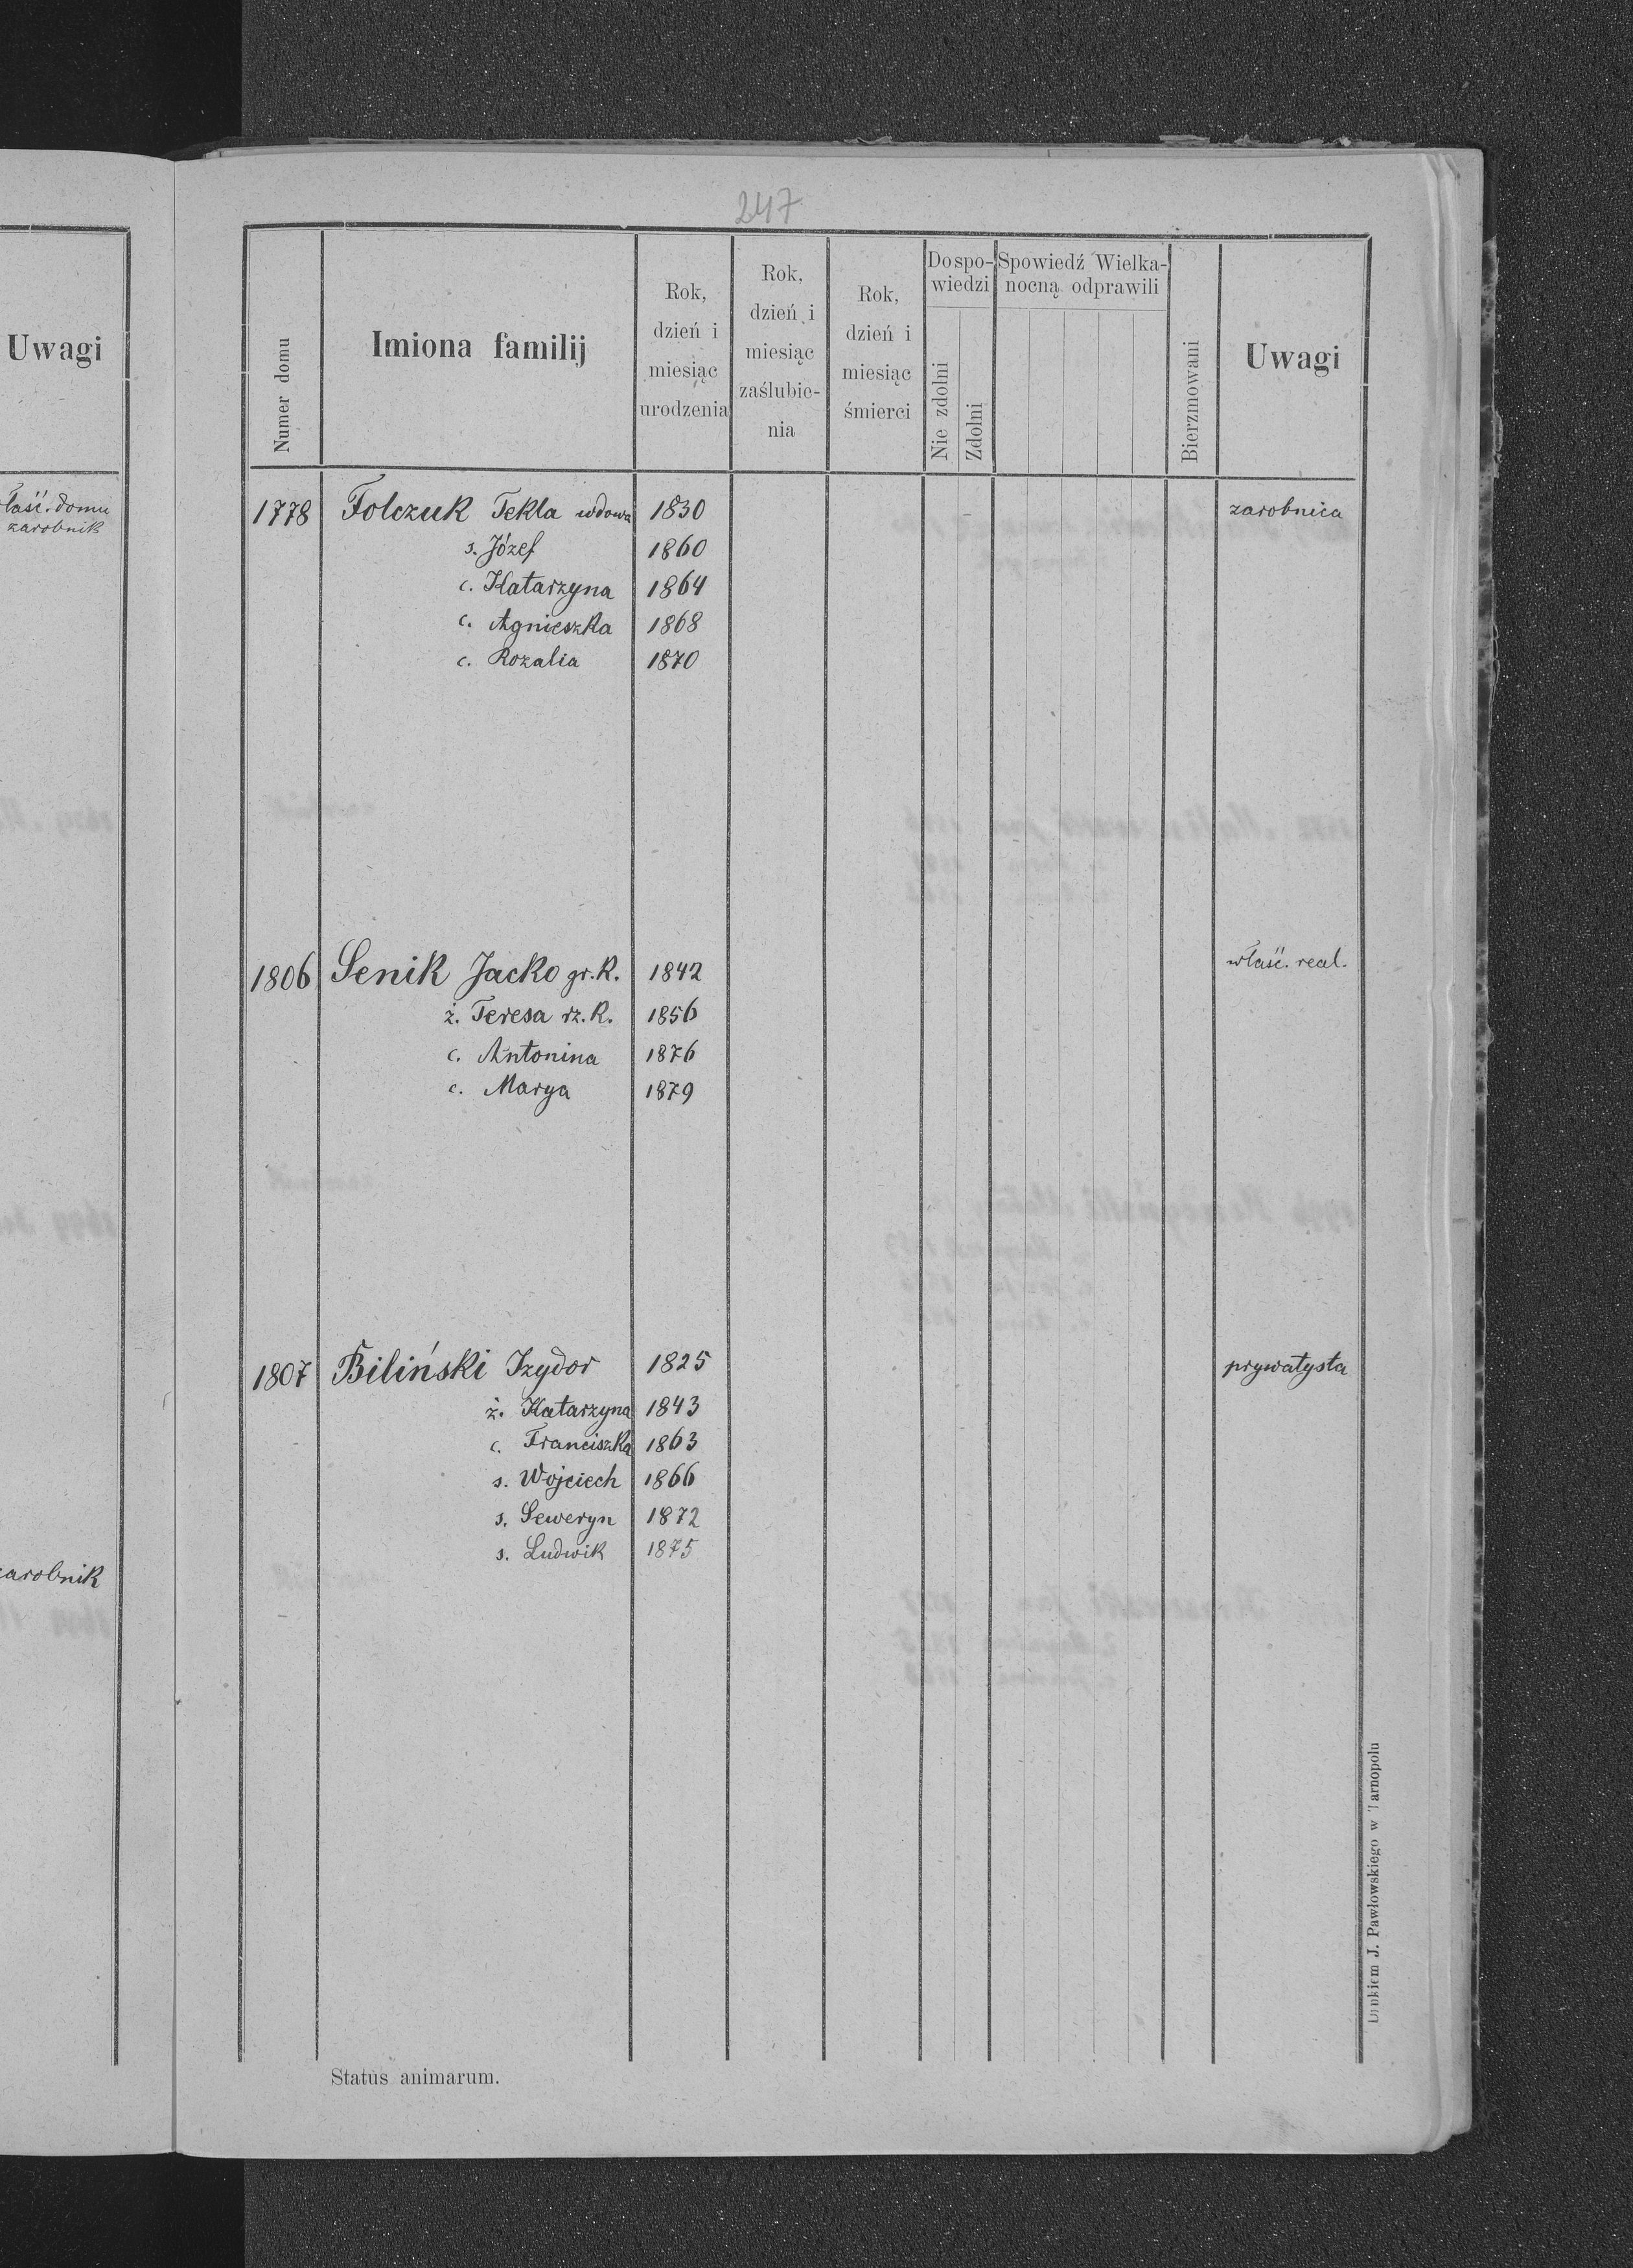 Uwagi
łaść. domu
zarobnik
zarobnik
247
Numer domu
Imiona familij
Rok,
dzień i
miesiąc
urodzenia
Rok,
dzień i
miesiąc
zaślubie-
nia
Rok,
dzień i
miesiąc
śmierci
Do spo-
wiedzi
Nie zdolni
Zdolni
Spowiedź Wielka-
nocną odprawili
Bierzmowani
Uwagi
1778 Folczuk Tekla wdowa 1830 zarobnica
s. Józef 1860
c. Katarzyna 1864
c. Agnieszka 1868
c. Rozalia 1870
1806 Senik Jacko gr. k. 1842 właść. real.
ż. Teresa rz. k. 1856
c. Antonina 1876
c. Marya 1879
1807 Biliński Izydor 1825 prywatysta
ż. Katarzyna 1843
c. Franciszka 1863
s. Wojciech 1866
s. Seweryn 1872
s. Ludwik 1875
Status animarum.
Drukiem J. Pawłowskiego w Tarnopolu